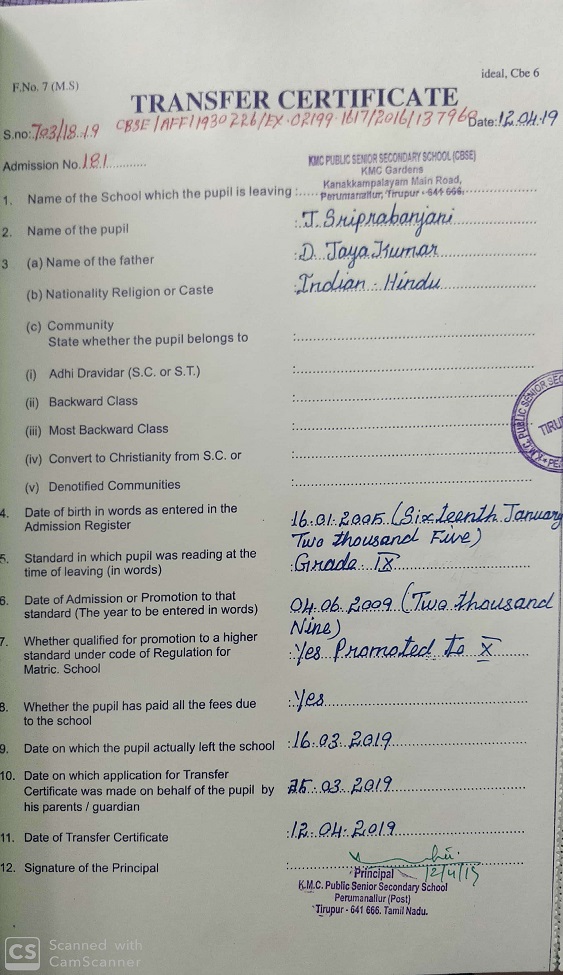 F.No. 7 (M.S)
ideal, Cbe 6
TRANSFER CERTIFICATE
S.no: 703/18-19 CBSE/AFF/1930226/EX-02199-1617/2016/137968 Date: 12.04.19
Admission No. 181
KMC PUBLIC SENIOR SECONDARY SCHOOL (CBSE)
KMC Gardens
Kanakkampalayam Main Road,
Perumanallur, Tirupur - 641 666.
1. Name of the School which the pupil is leaving :
2. Name of the pupil : J. Sriprabanjani
3 (a) Name of the father : D. Jaya Kumar
(b) Nationality Religion or Caste : Indian - Hindu
(c) Community
State whether the pupil belongs to :
(i) Adhi Dravidar (S.C. or S.T.) :
(ii) Backward Class :
(iii) Most Backward Class :
(iv) Convert to Christianity from S.C. or :
(v) Denotified Communities :
K.M.C. PUBLIC SENIOR SEC
TIRU
4. Date of birth in words as entered in the
Admission Register
16.01.2005 (Sixteenth January
Two thousand Five)
5. Standard in which pupil was reading at the
time of leaving (in words)
: Grade IX
6. Date of Admission or Promotion to that
standard (The year to be entered in words)
04.06.2009 (Two thousand
Nine)
7. Whether qualified for promotion to a higher
standard under code of Regulation for
Matric. School
: Yes Promoted to X
8. Whether the pupil has paid all the fees due
to the school
: Yes
9. Date on which the pupil actually left the school : 16.03.2019
10. Date on which application for Transfer
Certificate was made on behalf of the pupil by
his parents / guardian
25.03.2019
11. Date of Transfer Certificate : 12.04.2019
12. Signature of the Principal :
12/4/19
Principal
K.M.C. Public Senior Secondary School
Perumanallur (Post)
Tirupur - 641 666. Tamil Nadu.
CS Scanned with
CamScanner